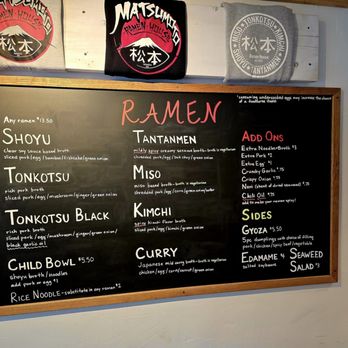 MATSUMOTO
RAMEN HOUSE
松本
MATSUMOTO
RAMEN HOUSE
松本
MISO
TONKOTSU
KIMCHI
SHOYU
TANTANMEN
松本
*consuming undercooked eggs may increase the chance
of a foodborne illness
RAMEN
Any ramen $13.50
SHOYU
clear soy sauce based broth
sliced pork/egg/bamboo/fishcake/green onion
TONKOTSU
rich pork broth
sliced pork/egg/mushroom/ginger/green onion
TONKOTSU BLACK
rich pork broth
sliced pork/egg/mushroom/ginger/green onion/
black garlic oil
CHILD BOWL $5.50
shoyu broth/noodles
add pork or egg $1
RICE NOODLE-substitute in any ramen $2
TANTANMEN
mildly spicy creamy sesame broth-broth is vegetarian
shredded pork/egg/bok choy/green onion
MISO
miso based broth-broth is vegetarian
shredded pork/egg/corn/green onion
KIMCHI
spicy kimchi flavor broth
sliced pork/egg/kimchi/green onion
CURRY
Japanese mild curry broth-broth is vegetarian
chicken/egg/corn/carrot/green onion
ADD ONS
Extra Noodles/Broth $3
Extra Pork $2
Extra Egg $2
Crunchy Garlic $.75
Crispy Onion $.75
Nori (sheet of dried seaweed) $.75
Chili Oil $.75
add to make your ramen spicy!
SIDES
GYOZA $5.50
5pc dumplings with choice of filling
pork/chicken/spicy beef/vegetable
EDAMAME $4
salted soybeans
SEAWEED
SALAD $3